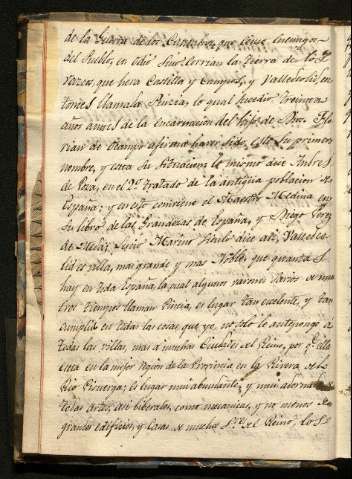 de la Guerra de los Cantabros, que fuese enemigos
del Pueblo, en odio suio corrian la tierra de los
Vazeos, que hera Castilla y Campos, y Valledolid, en
tonces llamada Pincia, lo qual sucedio treinta
años antes de la encarnacion del hijo de Dios. Flo
rian de Ocampo afirma haver sido este su primero
nombre, y cerca su fundacion lo mismo dice Andres
de Poza, en el 2º tratado de la antigua poblacion de
España; y en esto conviene el Maestro Medina en
su libro de las Grandezas de España, y Diego Perez
de Mesa; Lucio Marineo Siculo dice asi, Valledo
lid es villa, mas grande y mas Noble que quantas
hay en toda España, la qual algunos varones Sabios de nues
tros tiempos llaman Pincia, es lugar tan excelente, y tan
cumplido en todas las cosas que yo, no solo le antepongo a
todas las villas, mas a muchas Ciudades del Reino, por q. ella
esta en la mejor region de la Provincia en la Rivera del
Rio Pisuerga; es lugar mui abundante, y mui adornado
de las artes, asi liberales, como mecanicas, y no menos de
grandes edificios, y Casas de muchos S.res del Reino, los